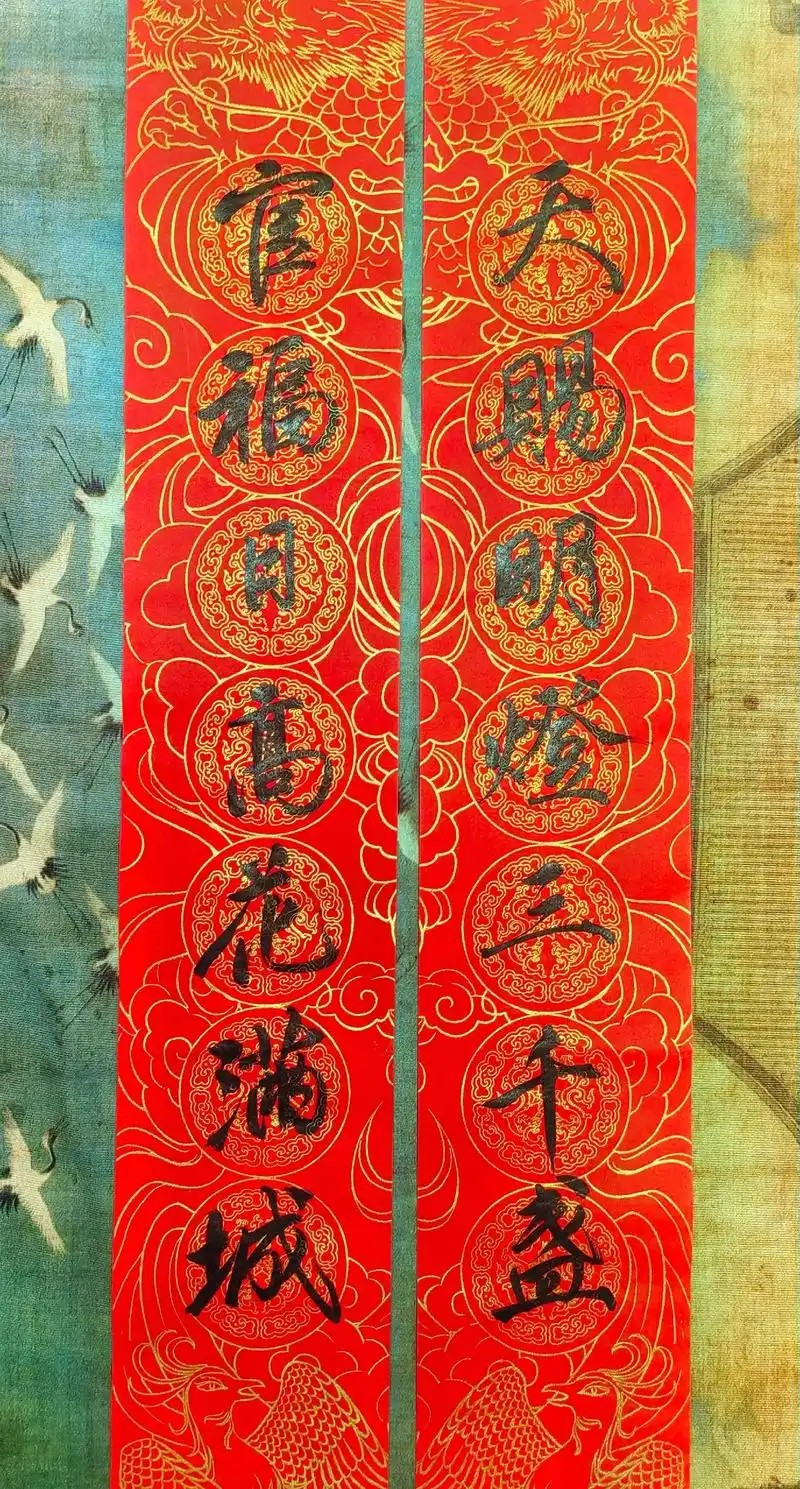 天賜明燈三千盞
官福日高花滿城